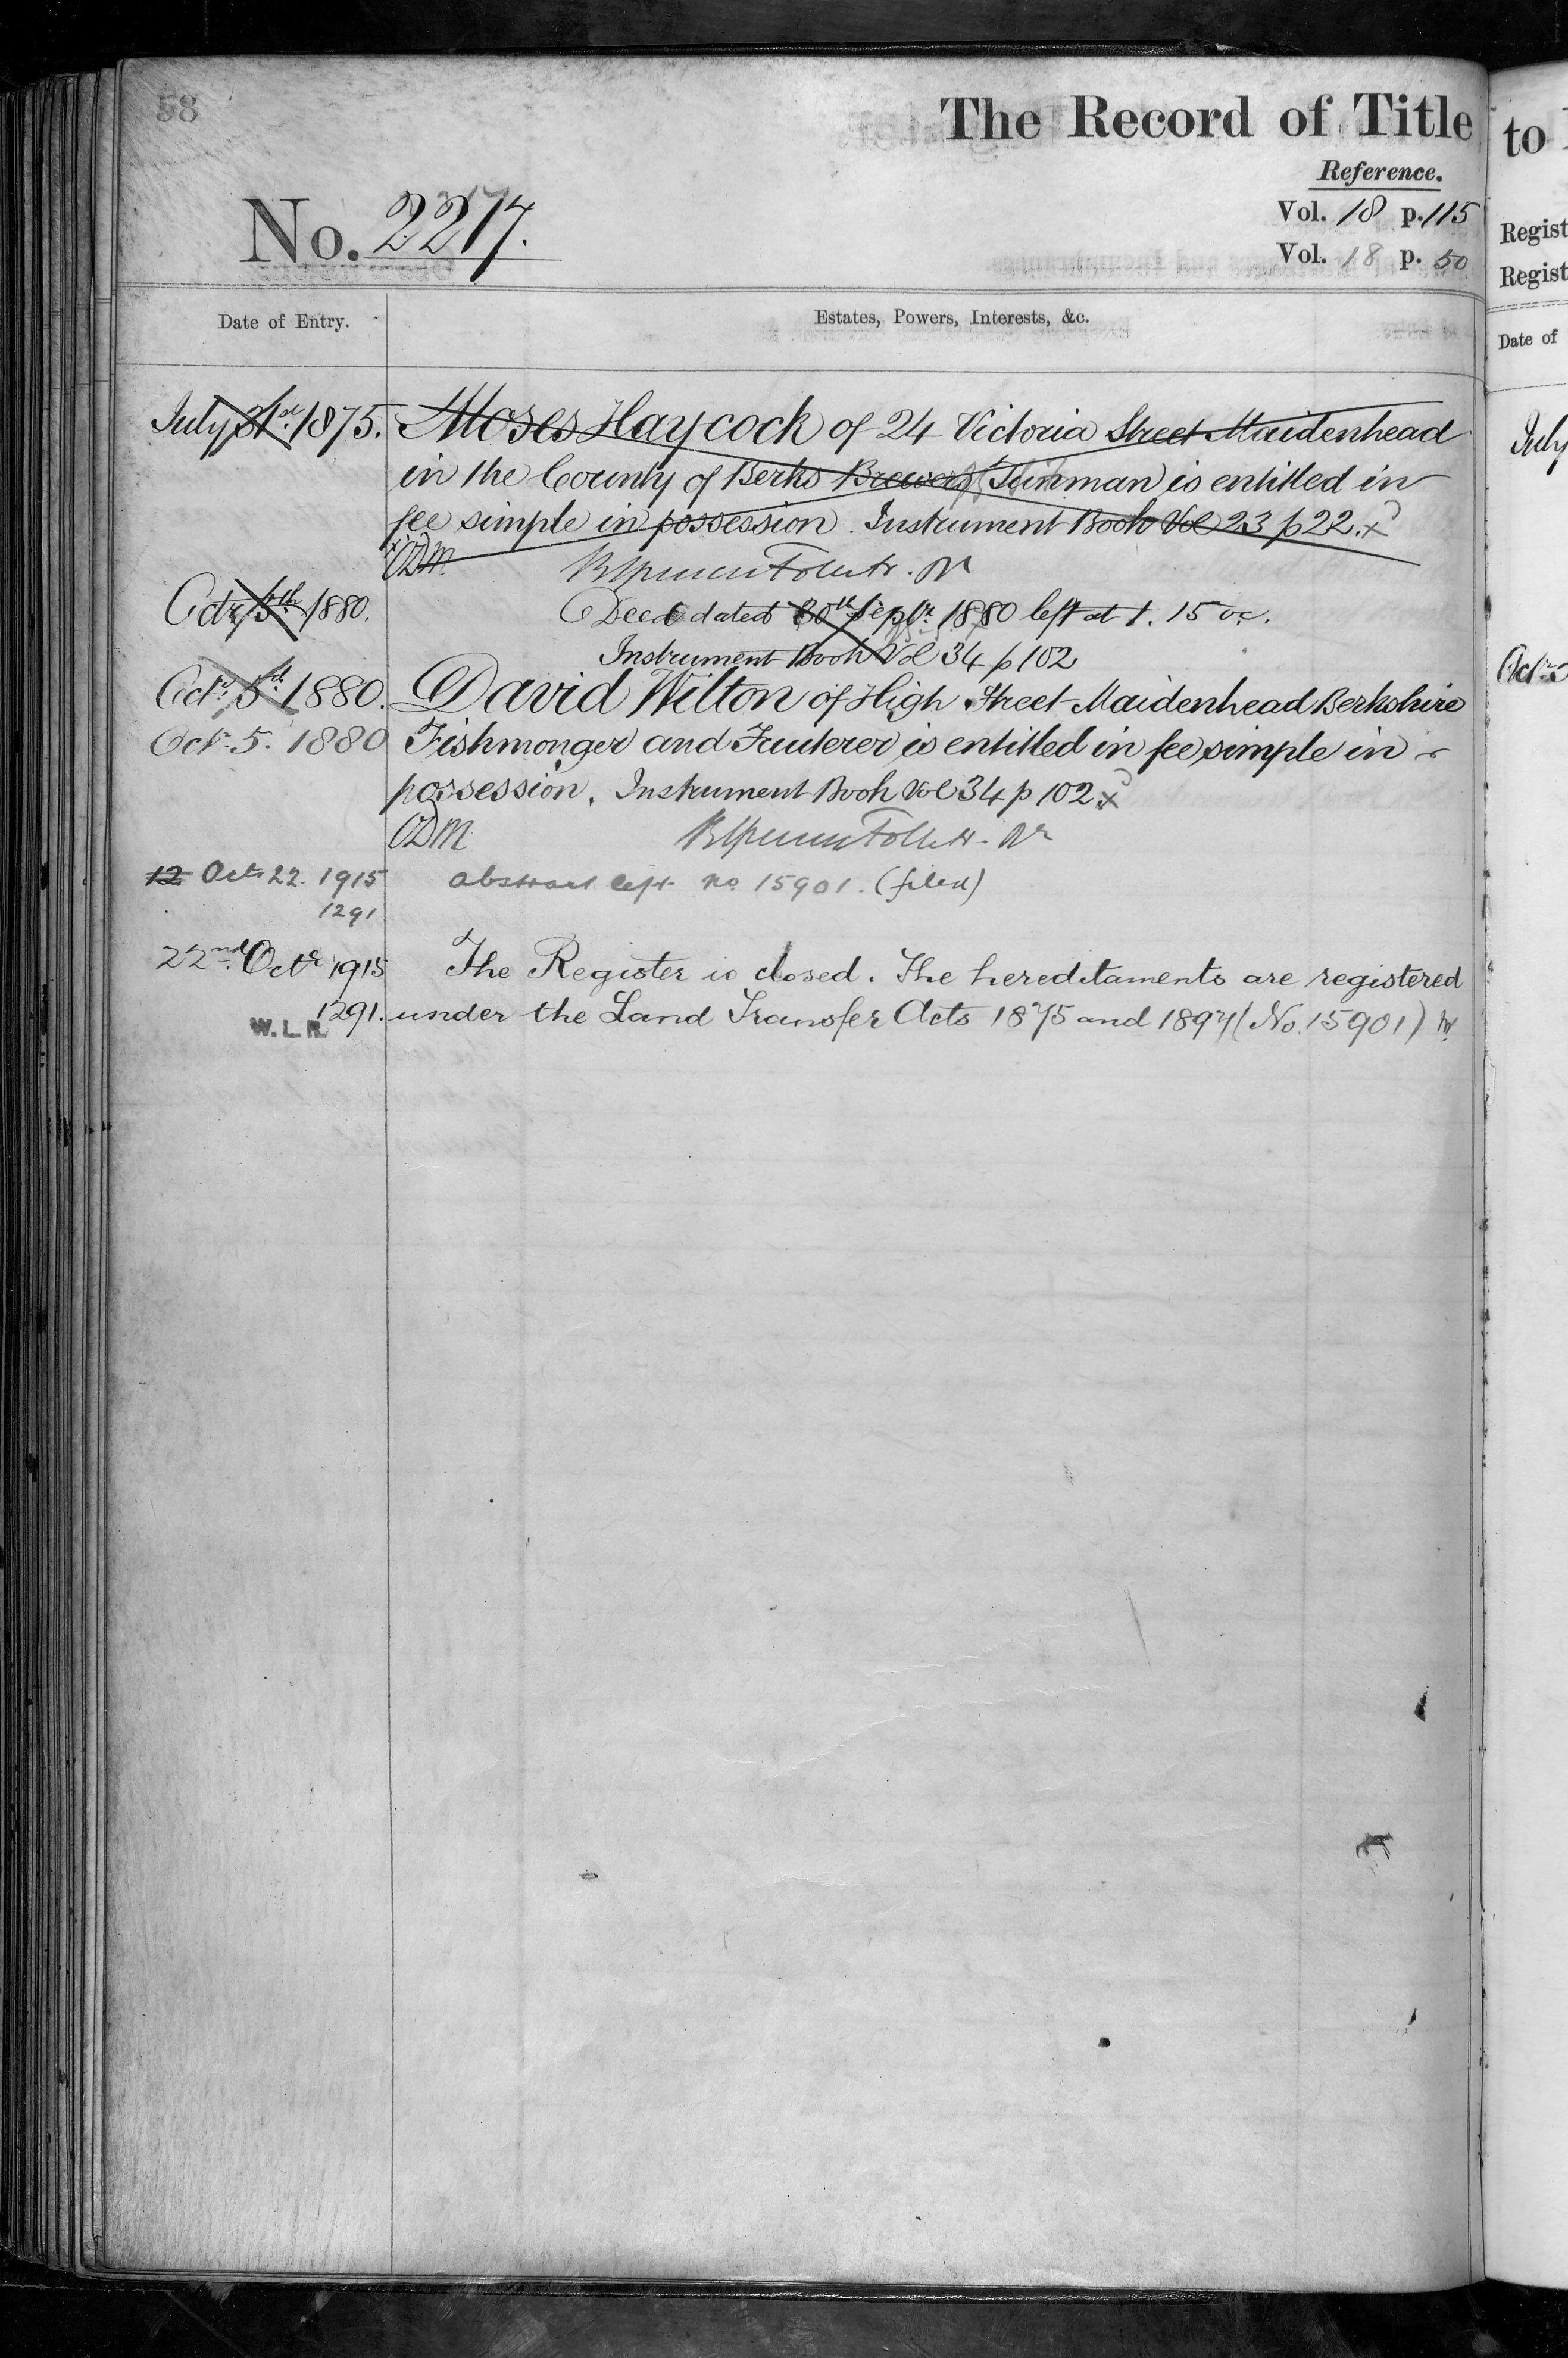 58
The Record of Title
Reference.
No. 2217.
Vol. 18 p. 115
Vol. 18 p. 50
Date of Entry.
Estates, Powers, Interests, &c.
July 31st 1875. Moses Haycock of 24 Victoria Street Maidenhead
in the County of Berks Brewers Tunman is entitled in
fee simple in possession. Instrument Book Vol 23 p 22.
ODM
Octr 5th 1880. Deed dated 30th Septr. 1880 left at 1. 15 oc.
Instrument Book Vol 34 p 102
Octr. 5th. 1880. David Wilton of High Street Maidenhead Berkshire
Oct. 5. 1880 Fishmonger and Fruiterer is entitled in fee simple in
possession. Instrument Book Vol 34 p 102
ODM
12 Oct. 22. 1915 abstract left no. 15901. (filed)
1291
22nd. Octr 1915 The Register is closed. The hereditaments are registered
1291. under the Land Transfer Acts 1875 and 1897 (No. 15901)
W.L.R.
to
Regist
Regist
Date of
July
Oct.